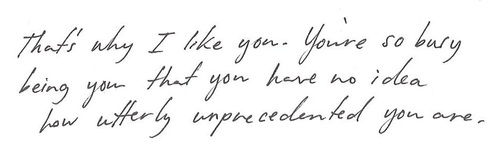 That's why I like you. You're so busy
being you that you have no idea
how utterly unprecedented you are.